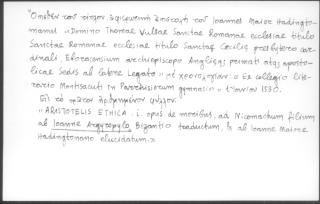 "Ὄπισθεν τοῦ τίτλου ἀφιερωτικὴ ἐπιστολὴ τοῦ Ioannes Maior Hadingto-
nanus «Domino Thomae Vulsae Sanctae Romanae ecclesiae titulo
Sanctae Romanae ecclesiae titulo Sanctae Ceciliae presbytero car-
dinali, Eboracensium archiepiscopo Angliaeque primati atque aposto-
licae Sedis a latere Legato» μὲ χρονολογίαν: «Ex collegio lite-
rario Montisacuti in Parrhisiorum gymnasio» 1530.
Εἰς τὸ πρῶτον ἀριθμημένον φύλλον:
«ARISTOTELIS ETHICA. i. opus de moribus, ad Nicomachum filium,
ab Ioanne Argyropylo Bizantio traductum, & ab Ioanne Maiore
Hadingtonano elucidatum.»